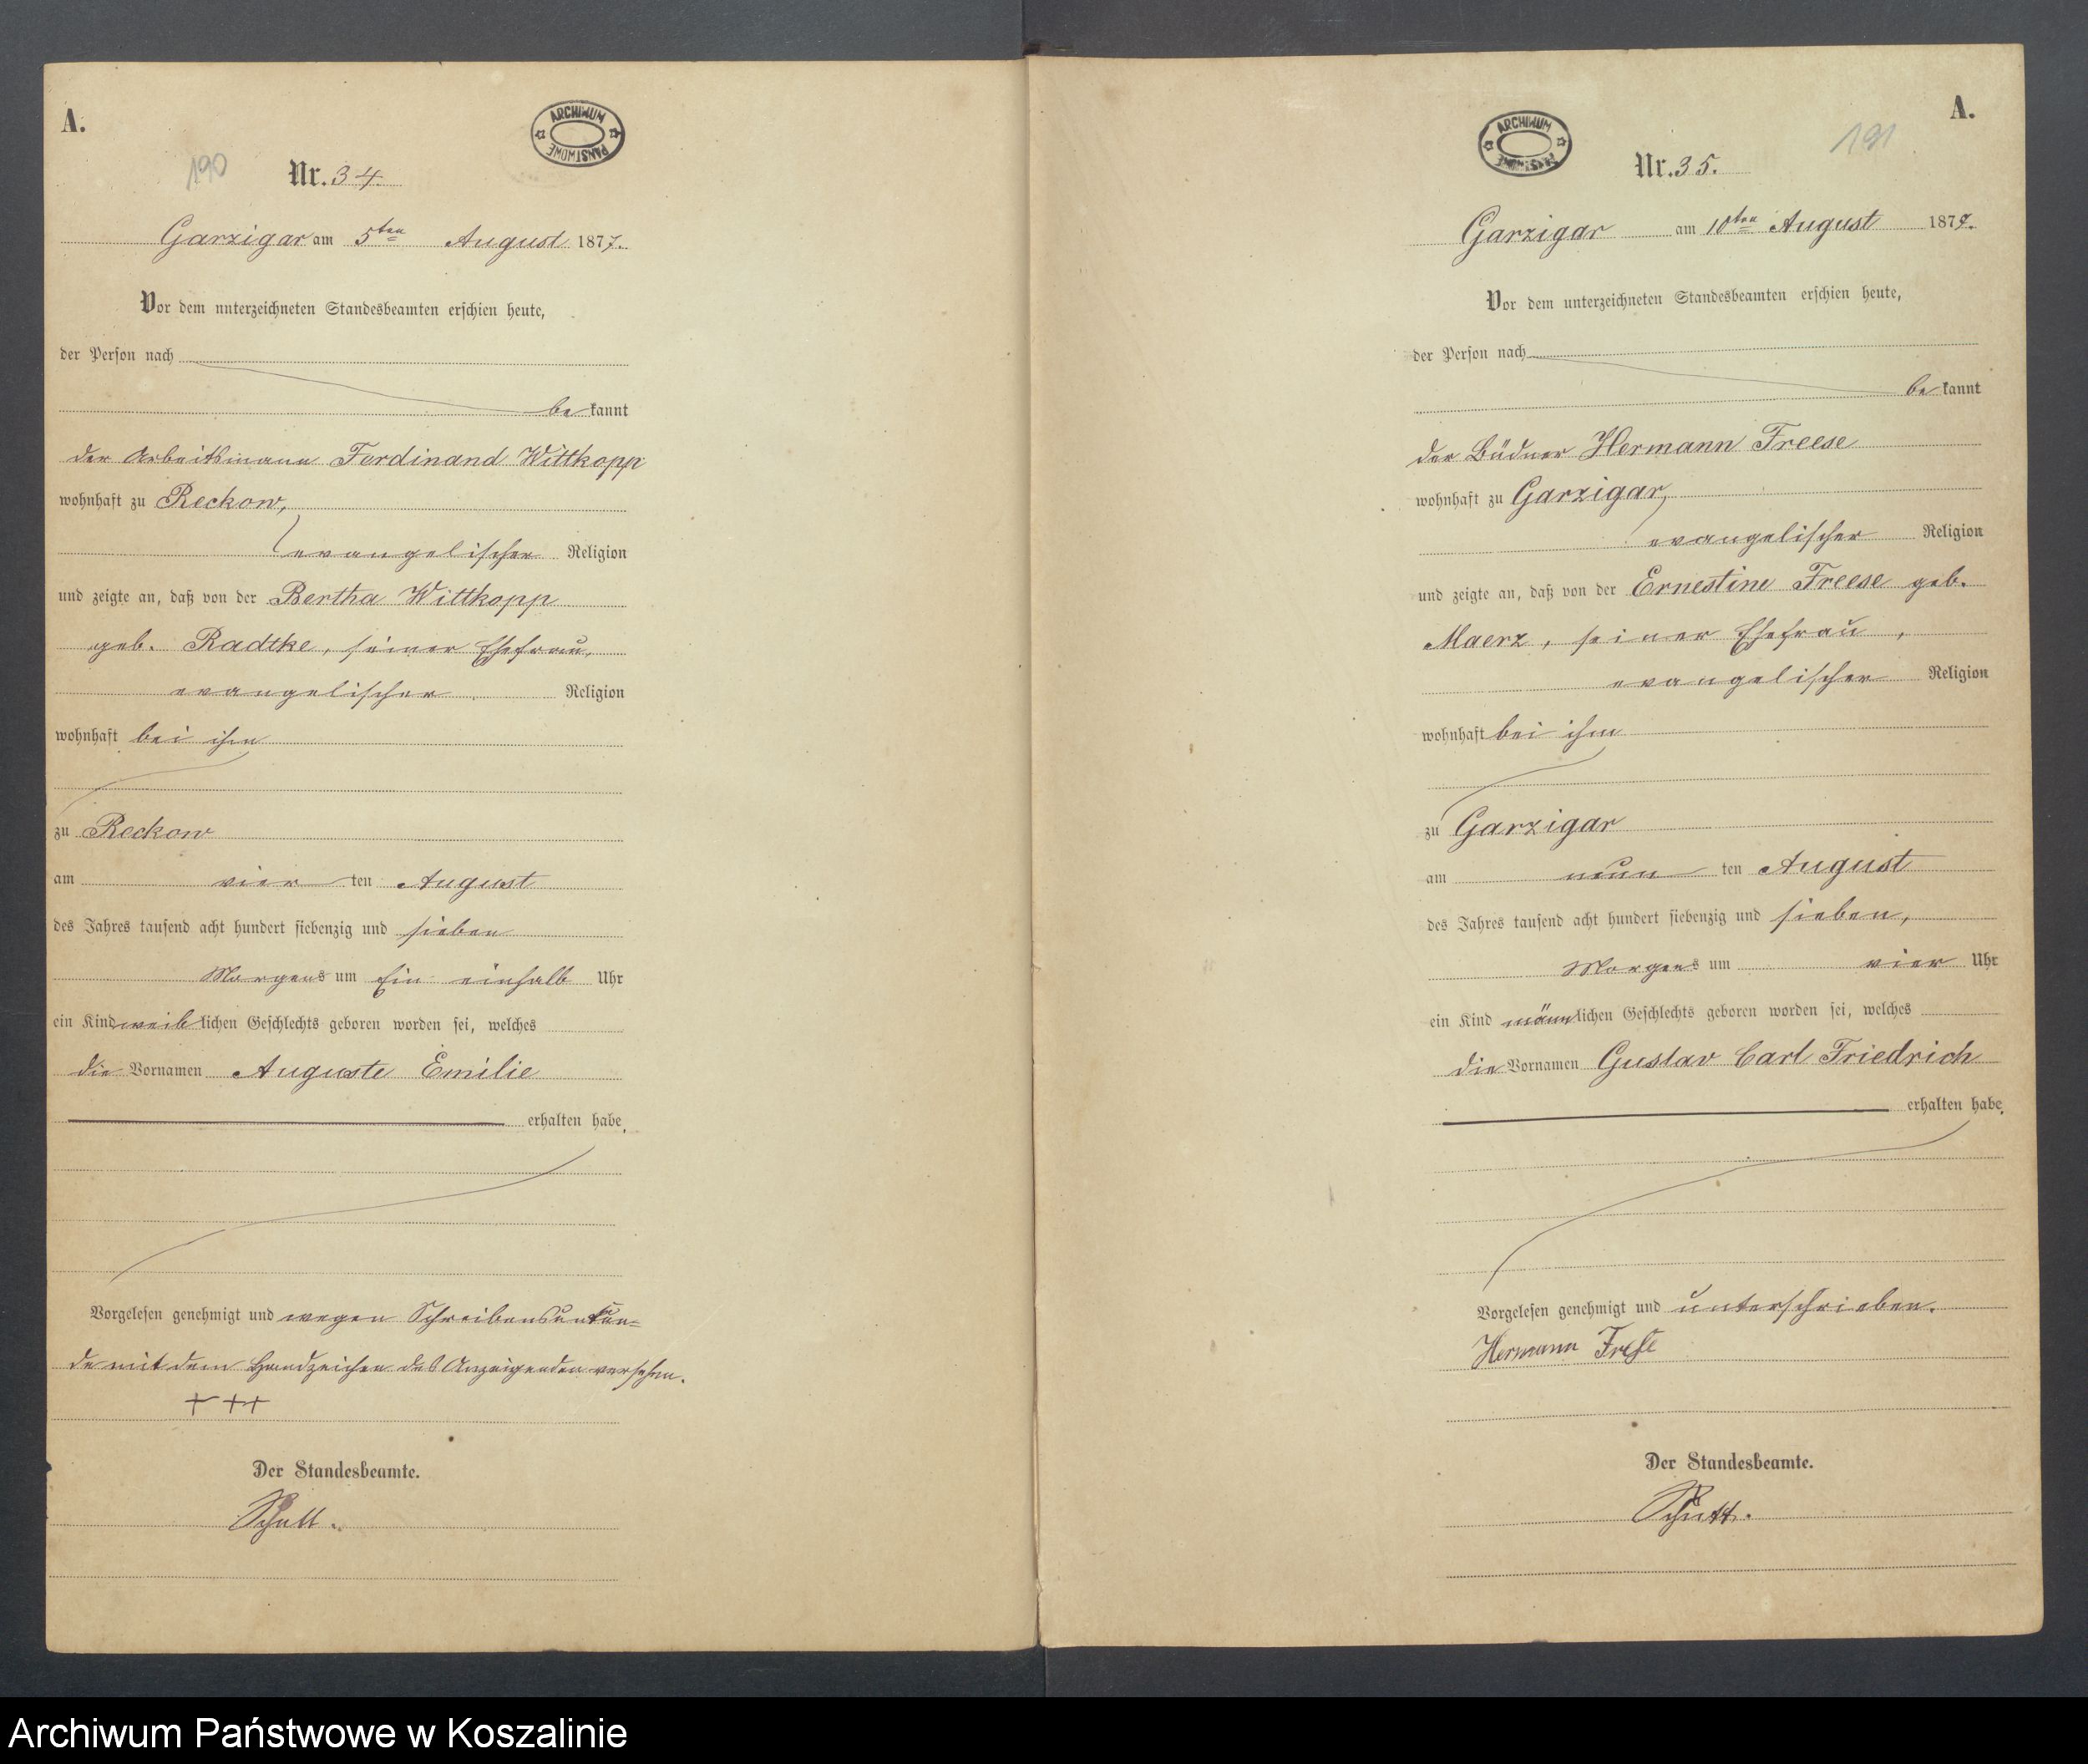 A.
190
Nr. 34.
ARCHIWUM PAŃSTWOWE
Garzigar am 5ten August 1877.
Vor dem unterzeichneten Standesbeamten erschien heute,
der Person nach
be kannt
der Arbeitsmann Ferdinand Wittkopp
wohnhaft zu Reckow,
evangelischer Religion
und zeigte an, daß von der Bertha Wittkopp
geb. Radtke, seiner Ehefrau,
evangelischer Religion
wohnhaft bei ihm
zu Reckow
am vier ten August
des Jahres tausend acht hundert siebenzig und sieben
Morgens um Ein einhalb Uhr
ein Kind weiblichen Geschlechts geboren worden sei, welches
die Vornamen Auguste Emilie
erhalten habe.
Vorgelesen genehmigt und wegen Schreibensunkun=
de mit dem Handzeichen des Anzeigenden versehen.
+ ++
Der Standesbeamte.
Schutt.
A.
191
ARCHIWUM PAŃSTWOWE
Nr. 35.
Garzigar am 10ten August 1877.
Vor dem unterzeichneten Standesbeamten erschien heute,
der Person nach
be kannt
der Büdner Hermann Freese
wohnhaft zu Garzigar,
evangelischer Religion
und zeigte an, daß von der Ernestine Freese geb.
Maerz, seiner Ehefrau,
evangelischer Religion
wohnhaft bei ihm
zu Garzigar
am neun ten August
des Jahres tausend acht hundert siebenzig und sieben,
Morgens um vier Uhr
ein Kind männlichen Geschlechts geboren worden sei, welches
die Vornamen Gustav Carl Friedrich
erhalten habe.
Vorgelesen genehmigt und unterschrieben.
Hermann Frese
Der Standesbeamte.
Schutt.
Archiwum Państwowe w Koszalinie